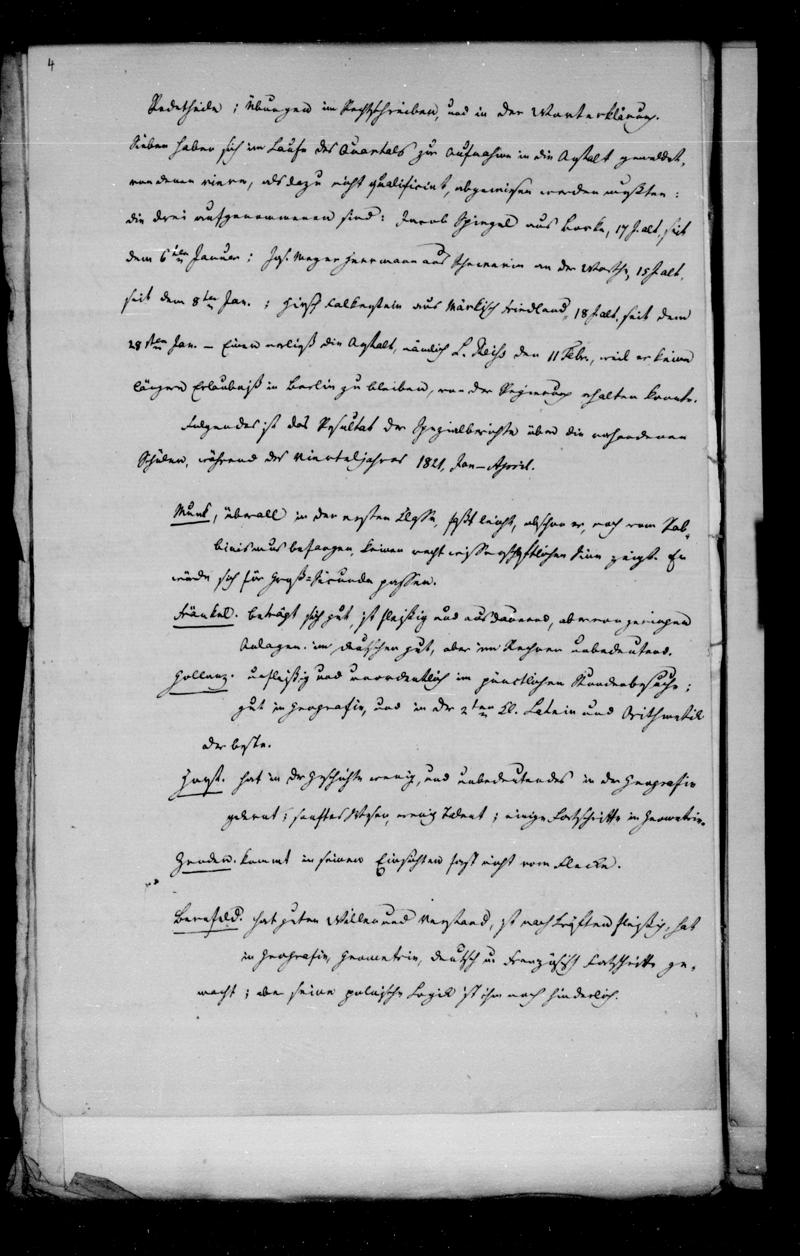 4
Redetheile; Übungen im Rechtschreiben, und in der Worterklärung.
Sieben haben sich im Laufe des Quartals zur Aufnahme in die Anstalt gemeldet,
von denen viere, als dazu nicht qualificirt, abgewiesen werden mußten:
die drei aufgenommenen sind: Jacob Spiegel aus Borke, 17 J. alt, seit
dem 6ten Januar; Jos. Meyer Herrmann aus Schwerin an der Warthe, 15 J. alt,
seit dem 8ten Jan.; Hirsch Falkenstein aus Märkisch Friedland, 18 J. alt, seit dem
28sten Jan. – Einer verließ die Anstalt, nämlich L. Reiß den 11 Febr., weil er keine
längere Erlaubniß in Berlin zu bleiben, von der Regierung erhalten konnte.
Folgendes ist das Resultat der Spezialberichte über die vorhandenen
Schüler, während des Vierteljahres 1821, Jan–April.
Munk, überall in der ersten Classe, faßt leicht, obschon er, noch vom Rab-
binismus befangen, keinen recht wissenschaftlichen Sinn zeigt. Er
würde sich für Groß-Secunda passen.
Fränkel. beträgt sich gut, ist fleißig und ausdauernd, aber von geringen
Anlagen. im deutschen gut, aber im Rechnen unbedeutend.
Hollenz. unfleißig und unordentlich im pünctlichen Stundenbesuche;
gut in Geografie, und in der 2ten Cl. Latein und Arithmetik
der beste.
Horst. hat in der Geschichte wenig, und unbedeutendes in der Geografie
gelernt; sanftes Wesen, wenig Talent; einige Fortschritte in Geometrie.
kommt in seinen Einsichten fast nicht vom Flecke.
Bernfeld. hat guten Willen und Verstand, ist nach Kräften fleißig, hat
in Geografie, Geometrie, deutsch u. Französisch Fortschritte ge-
macht; aber seine polnische Logik ist ihm noch hinderlich.